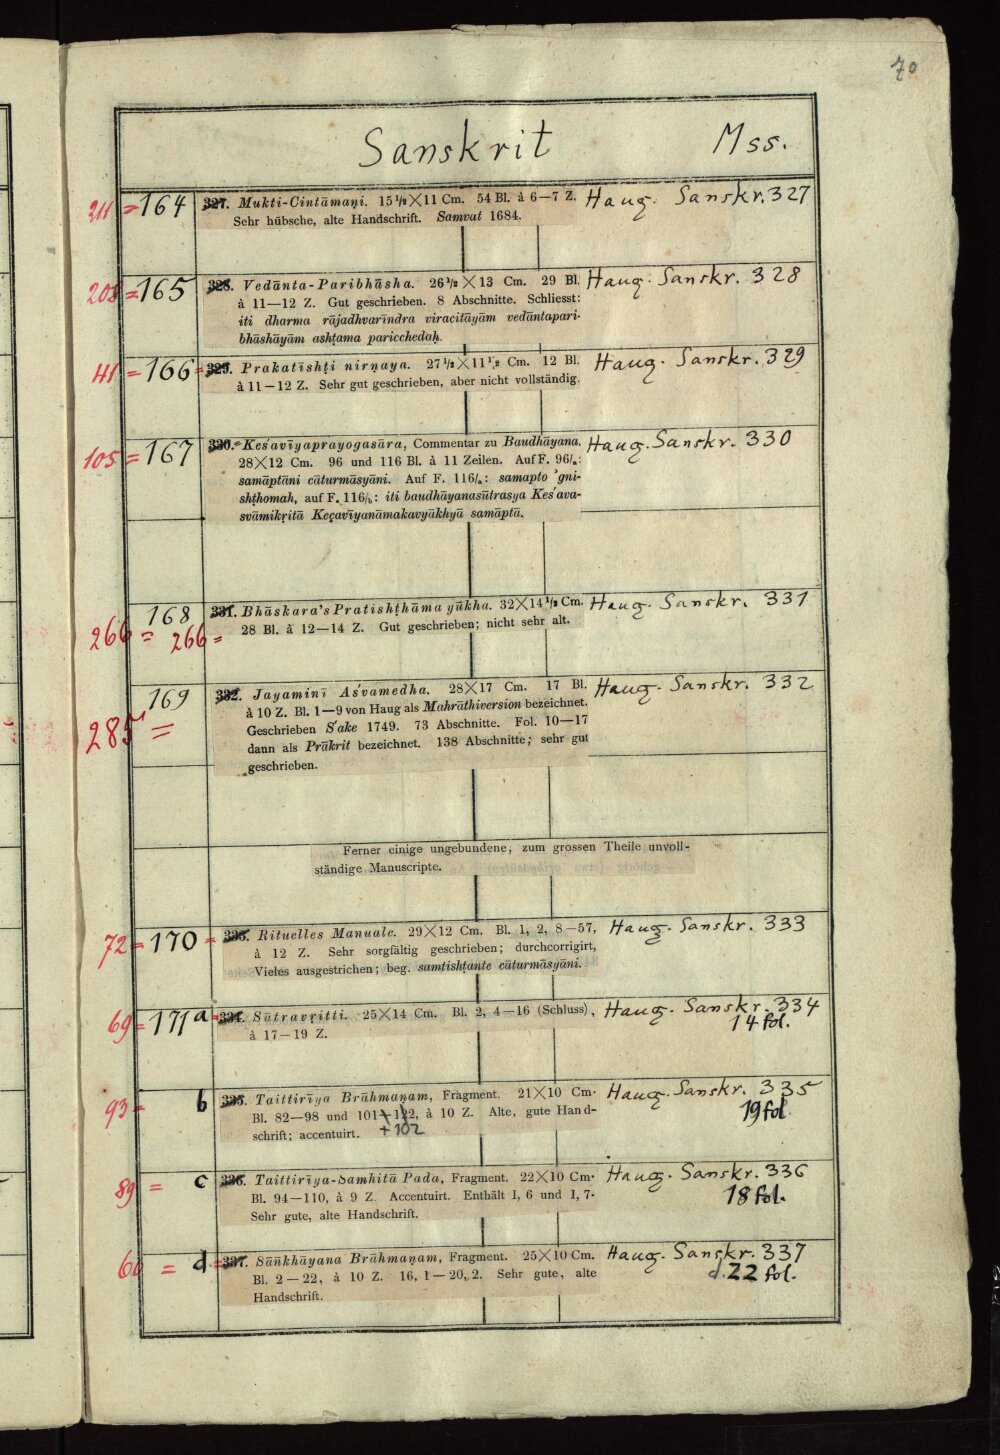 70
Sanskrit Mss.
211 = 164 327. Mukti-Cintāmaṇi. 15 1/2 × 11 Cm. 54 Bl. à 6—7 Z. Haug. Sanskr. 327
Sehr hübsche, alte Handschrift. Samvat 1684.
= 165 328. Vedānta-Paribhāsha. 26 1/2 × 13 Cm. 29 Bl. Haug. Sanskr. 328
à 11—12 Z. Gut geschrieben. 8 Abschnitte. Schliesst:
iti dharma rājadhvarīndra viracitāyām vedāntapari-
bhāshāyām ashṭama paricchedaḥ.
41 = 166 = 329. Prakatishṭi nirṇaya. 27 1/2 × 11 1/2 Cm. 12 Bl. Haug. Sanskr. 329
à 11—12 Z. Sehr gut geschrieben, aber nicht vollständig.
105 = 167 330. Keśavīyaprayogasāra, Commentar zu Baudhāyana. Haug. Sanskr. 330
28 × 12 Cm. 96 und 116 Bl. à 11 Zeilen. Auf F. 96/a:
samāptāni cāturmāsyāni. Auf F. 116/a: samapto 'gni-
shṭhomah, auf F. 116/b: iti baudhāyanasūtrasya Keśava-
svāmikṛitā Keçavīyanāmakavyākhyā samāptā.
266 = 168 266 = 331. Bhāskara's Pratishṭhāma yūkha. 32 × 14 1/2 Cm. Haug. Sanskr. 331
28 Bl. à 12—14 Z. Gut geschrieben; nicht sehr alt.
285 = 169 332. Jayaminī Aśvamedha. 28 × 17 Cm. 17 Bl. Haug. Sanskr. 332
à 10 Z. Bl. 1—9 von Haug als Mahrāthiversion bezeichnet.
Geschrieben Śake 1749. 73 Abschnitte. Fol. 10—17
dann als Prākrit bezeichnet. 138 Abschnitte; sehr gut
geschrieben.
Ferner einige ungebundene, zum grossen Theile unvoll-
ständige Manuscripte.
72 = 170 = 333. Rituelles Manuale. 29 × 12 Cm. Bl. 1, 2, 8—57, Haug. Sanskr. 333
à 12 Z. Sehr sorgfältig geschrieben; durchcorrigirt,
Vieles ausgestrichen; beg. samtishṭante cāturmāsyāni.
69 = 171 a = 334. Sūtravṛitti. 25 × 14 Cm. Bl. 2, 4—16 (Schluss), Haug. Sanskr. 334
à 17—19 Z. 14 fol.
93 = b 335. Taittirīya Brāhmaṇam, Fragment. 21 × 10 Cm. Haug. Sanskr. 335
Bl. 82—98 und 101—122, à 10 Z. Alte, gute Hand- 19 fol.
schrift; accentuirt. + 102
89 = c 336. Taittirīya-Samhitā Pada, Fragment. 22 × 10 Cm. Haug. Sanskr. 336
Bl. 94—110, à 9 Z. Accentuirt. Enthält I, 6 und I, 7. 18 fol.
Sehr gute, alte Handschrift.
= d = 337. Sāñkhāyana Brāhmaṇam, Fragment. 25 × 10 Cm. Haug. Sanskr. 337
Bl. 2—22, à 10 Z. 16, 1—20, 2. Sehr gute, alte 22 fol.
Handschrift.